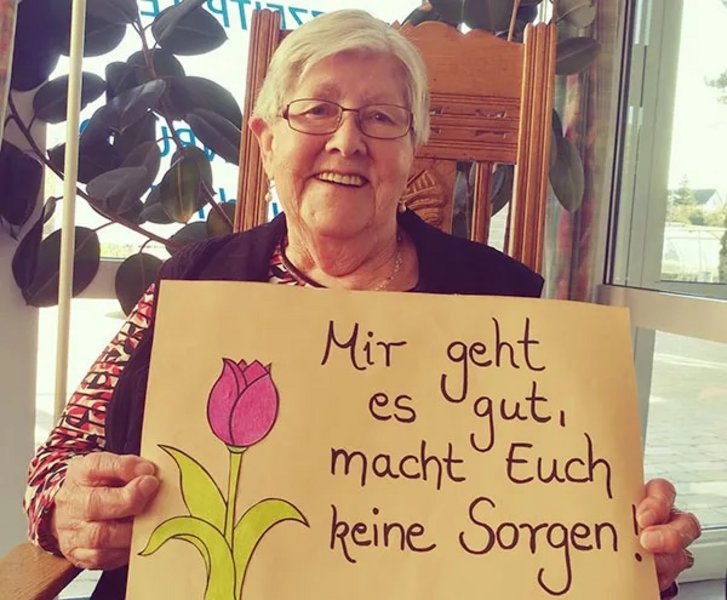 Mir geht
es gut,
macht Euch
keine Sorgen!